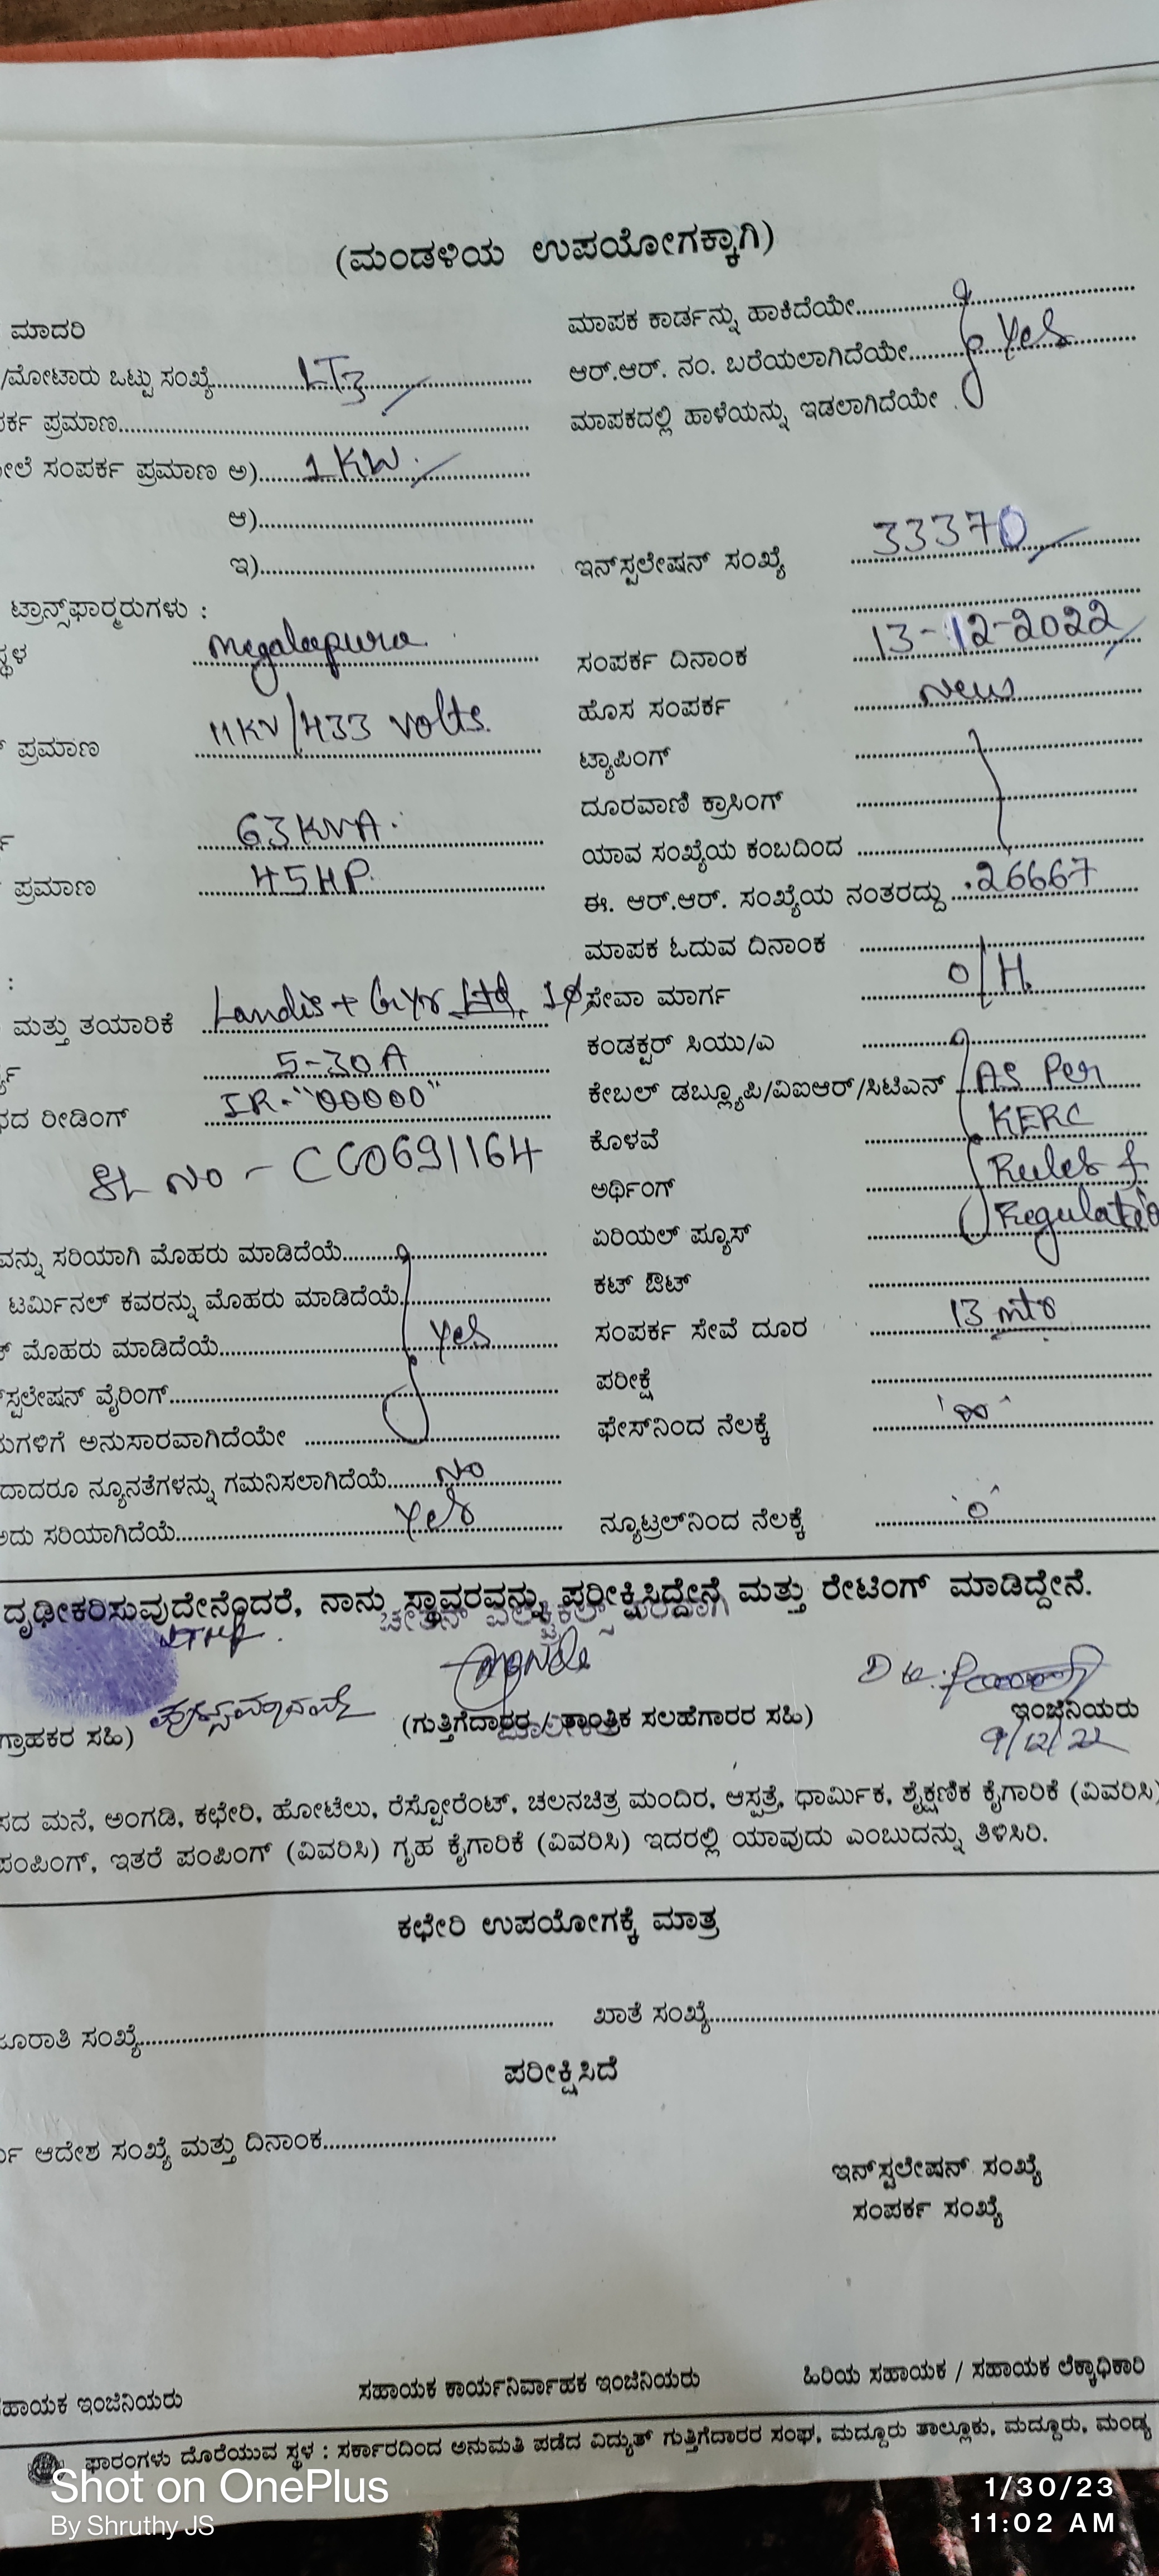 (ಮಂಡಳಿಯ ಉಪಯೋಗಕ್ಕಾಗಿ)
ಮಾದರಿ
/ಮೋಟಾರು ಒಟ್ಟು ಸಂಖ್ಯೆ LT3
ಪ್ರಮಾಣ
ಸಂಪರ್ಕ ಪ್ರಮಾಣ ಅ) 1 KW
ಆ)
ಇ)
ಟ್ರಾನ್ಸ್‌ಫಾರ್ಮರುಗಳು :
Megalapura
ಪ್ರಮಾಣ 11KV/433 Volts
63 KVA
ಪ್ರಮಾಣ 45HP
:
ಮತ್ತು ತಯಾರಿಕೆ Landis + Gyr Ltd,
5-30A
ರೀಡಿಂಗ್ IR-"00000"
SL NO - CC0691164
ಸರಿಯಾಗಿ ಮೊಹರು ಮಾಡಿದೆಯೆ
ಟರ್ಮಿನಲ್ ಕವರನ್ನು ಮೊಹರು ಮಾಡಿದೆಯೆ
ಮೊಹರು ಮಾಡಿದೆಯೆ Yes
ವೈರಿಂಗ್
ಅನುಸಾರವಾಗಿದೆಯೇ
ನ್ಯೂನತೆಗಳನ್ನು ಗಮನಿಸಲಾಗಿದೆಯೆ No
ಸರಿಯಾಗಿದೆಯೆ Yes
ಮಾಪಕ ಕಾರ್ಡನ್ನು ಹಾಕಿದೆಯೇ
ಆರ್.ಆರ್. ನಂ. ಬರೆಯಲಾಗಿದೆಯೇ Yes
ಮಾಪಕದಲ್ಲಿ ಹಾಳೆಯನ್ನು ಇಡಲಾಗಿದೆಯೇ
ಇನ್‌ಸ್ಟಲೇಷನ್ ಸಂಖ್ಯೆ 33370
ಸಂಪರ್ಕ ದಿನಾಂಕ 13-12-2022
ಹೊಸ ಸಂಪರ್ಕ New
ಟ್ಯಾಪಿಂಗ್
ದೂರವಾಣಿ ಕ್ರಾಸಿಂಗ್
ಯಾವ ಸಂಖ್ಯೆಯ ಕಂಬದಿಂದ
ಈ. ಆರ್.ಆರ್. ಸಂಖ್ಯೆಯ ನಂತರದ್ದು 26667
ಮಾಪಕ ಓದುವ ದಿನಾಂಕ
ಸೇವಾ ಮಾರ್ಗ O/H
ಕಂಡಕ್ಟರ್ ಸಿಯು/ಎ
ಕೇಬಲ್ ಡಬ್ಲ್ಯೂಪಿ/ವಿಐಆರ್/ಸಿಟಿಎಸ್ As Per
ಕೊಳವೆ KERC
ಅರ್ಥಿಂಗ್ Rules &
ಏರಿಯಲ್ ಪ್ಯೂಸ್ Regulatio
ಕಟ್ ಔಟ್
ಸಂಪರ್ಕ ಸೇವೆ ದೂರ 13 mts
ಪರೀಕ್ಷೆ
ಫೇಸ್‌ನಿಂದ ನೆಲಕ್ಕೆ ∞
ನ್ಯೂಟ್ರಲ್‌ನಿಂದ ನೆಲಕ್ಕೆ 0
ದೃಢೀಕರಿಸುವುದೇನೆಂದರೆ, ನಾನು ಸ್ಥಾವರವನ್ನು ಪರೀಕ್ಷಿಸಿದ್ದೇನೆ ಮತ್ತು ರೇಟಿಂಗ್ ಮಾಡಿದ್ದೇನೆ.
ಗ್ರಾಹಕರ ಸಹಿ) (ಗುತ್ತಿಗೆದಾರರ / ತಾಂತ್ರಿಕ ಸಲಹೆಗಾರರ ಸಹಿ) ಇಂಜಿನಿಯರು
9/12/22
ಮನೆ, ಅಂಗಡಿ, ಕಛೇರಿ, ಹೋಟೆಲು, ರೆಸ್ಟೋರೆಂಟ್, ಚಲನಚಿತ್ರ ಮಂದಿರ, ಆಸ್ಪತ್ರೆ, ಧಾರ್ಮಿಕ, ಶೈಕ್ಷಣಿಕ ಕೈಗಾರಿಕೆ (ವಿವರಿಸಿ)
ಪಂಪಿಂಗ್, ಇತರೆ ಪಂಪಿಂಗ್ (ವಿವರಿಸಿ) ಗೃಹ ಕೈಗಾರಿಕೆ (ವಿವರಿಸಿ) ಇದರಲ್ಲಿ ಯಾವುದು ಎಂಬುದನ್ನು ತಿಳಿಸಿರಿ.
ಕಛೇರಿ ಉಪಯೋಗಕ್ಕೆ ಮಾತ್ರ
ಸಂಖ್ಯೆ ಖಾತೆ ಸಂಖ್ಯೆ
ಪರೀಕ್ಷಿಸಿದೆ
ಆದೇಶ ಸಂಖ್ಯೆ ಮತ್ತು ದಿನಾಂಕ
ಇನ್‌ಸ್ಟಲೇಷನ್ ಸಂಖ್ಯೆ
ಸಂಪರ್ಕ ಸಂಖ್ಯೆ
ಇಂಜಿನಿಯರು ಸಹಾಯಕ ಕಾರ್ಯನಿರ್ವಾಹಕ ಇಂಜಿನಿಯರು ಹಿರಿಯ ಸಹಾಯಕ / ಸಹಾಯಕ ಲೆಕ್ಕಾಧಿಕಾರಿ
ಫಾರಂಗಳು ದೊರೆಯುವ ಸ್ಥಳ : ಸರ್ಕಾರದಿಂದ ಅನುಮತಿ ಪಡೆದ ವಿದ್ಯುತ್ ಗುತ್ತಿಗೆದಾರರ ಸಂಘ, ಮದ್ದೂರು ತಾಲ್ಲೂಕು, ಮದ್ದೂರು, ಮಂಡ್ಯ
Shot on OnePlus
By Shruthy JS
1/30/23
11:02 AM